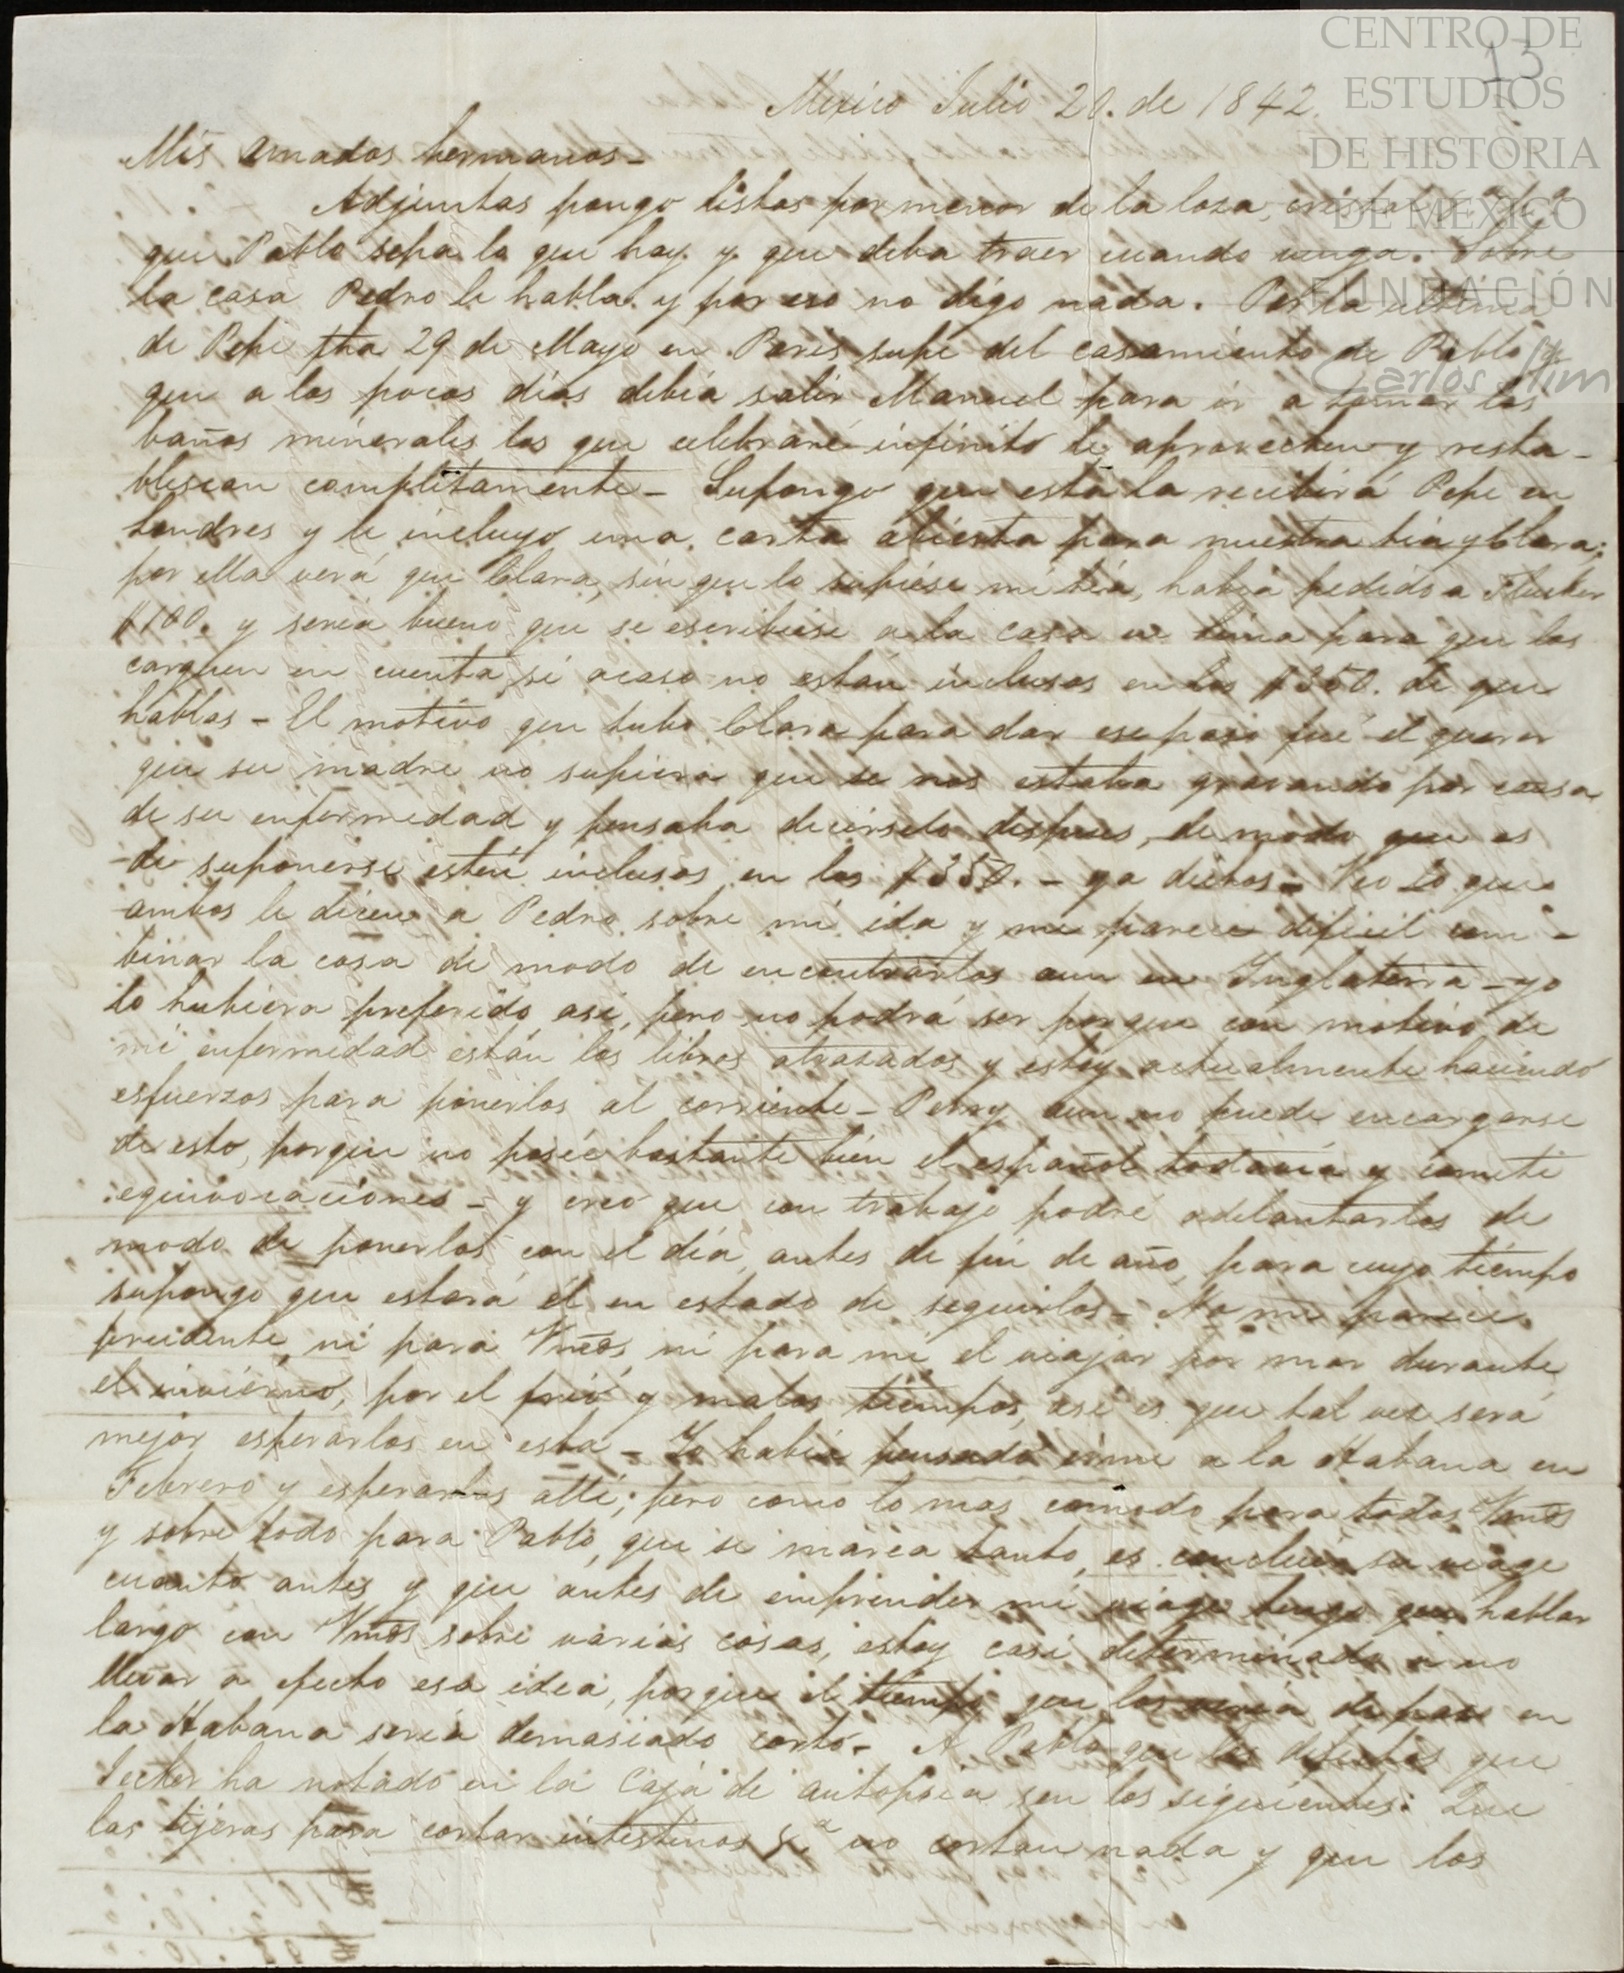 CENTRO DE
ESTUDIOS
DE HISTORIA
DE MEXICO
FUNDACIÓN
Carlos Slim
13
Mexico Julio 20. de 1842.
Mis amados hermanos-
Adjuntas pongo listas por menor de la loza, cristal
que Pablo sepa lo que hay y que deba traer cuando venga. Sobre
la casa Pedro le habla y por eso no digo nada. Por la ultima
de Pepe fha 29 de Mayo en Paris supe del casamiento de Pablo y
que a los pocos dias debia salir Manuel para ir a tomar los
baños minerales los que celebraré infinito le aprovechen y resta-
blescan completamente- Supongo que esta la recibirá Pepe en
Londres y le incluyo una carta abierta para nuestra tia y Clara;
por ella verá que Clara, sin que lo supiese mi tia, habia pedido a
$100. y seria bueno que se escribiese a la casa de Lima para que los
carguen en cuenta si acaso no están inclusos en los $350. de que
hablas- El motivo que tubo Clara para dar ese paso fué el querer
que su madre no supiera que se nos estaba gravando por causa
de su enfermedad y pensaba decirselo despues, de modo que es
de suponerse estén inclusos en los $350.- ya dichos- Veo lo que
ambos le dicen a Pedro sobre mi ida y me parece dificil com-
binar la cosa de modo de encontrarlos aun en Inglaterra- yo
lo hubiera preferido asi, pero no podrá ser porque con motivo de
mi enfermedad están los libros atrasados y estoy actualmente haciendo
esfuerzos para ponerlos al corriente- Perry aun no puede encargarse
de esto, porque no poséé bastante bien el español todavia y comete
equivocaciones- y creo que con trabajo podré adelantarlos de
modo de ponerlos con el dia, antes de fin de año, para cuyo tiempo
supongo que estará él en estado de seguirlos- No me parece
prudente, ni para Vmds, ni para mi el viajar por mar durante
el invierno, por el frio y malos tiempos, asi es que tal vez será
mejor esperarlos en esta- Yo habia pensado irme a la Habana en
Febrero y esperarlos allí; pero como lo mas comodo para todos Vmds
y sobre todo para Pablo, que se marea tanto, es concluir su viage
cuanto antes y que antes de emprender mi viage tengo que hablar
largo con Vmds sobre varias cosas, estoy casi determinado a no
llevar a efecto esa idea, porque el tiempo que los veria de paso en
la Habana seria demasiado corto- A Pablo que los defectos que
Jecker ha notado en la Caja de autopsia son los siguientes: Que
las tijeras para cortar intestinos &a no cortan nada y que los